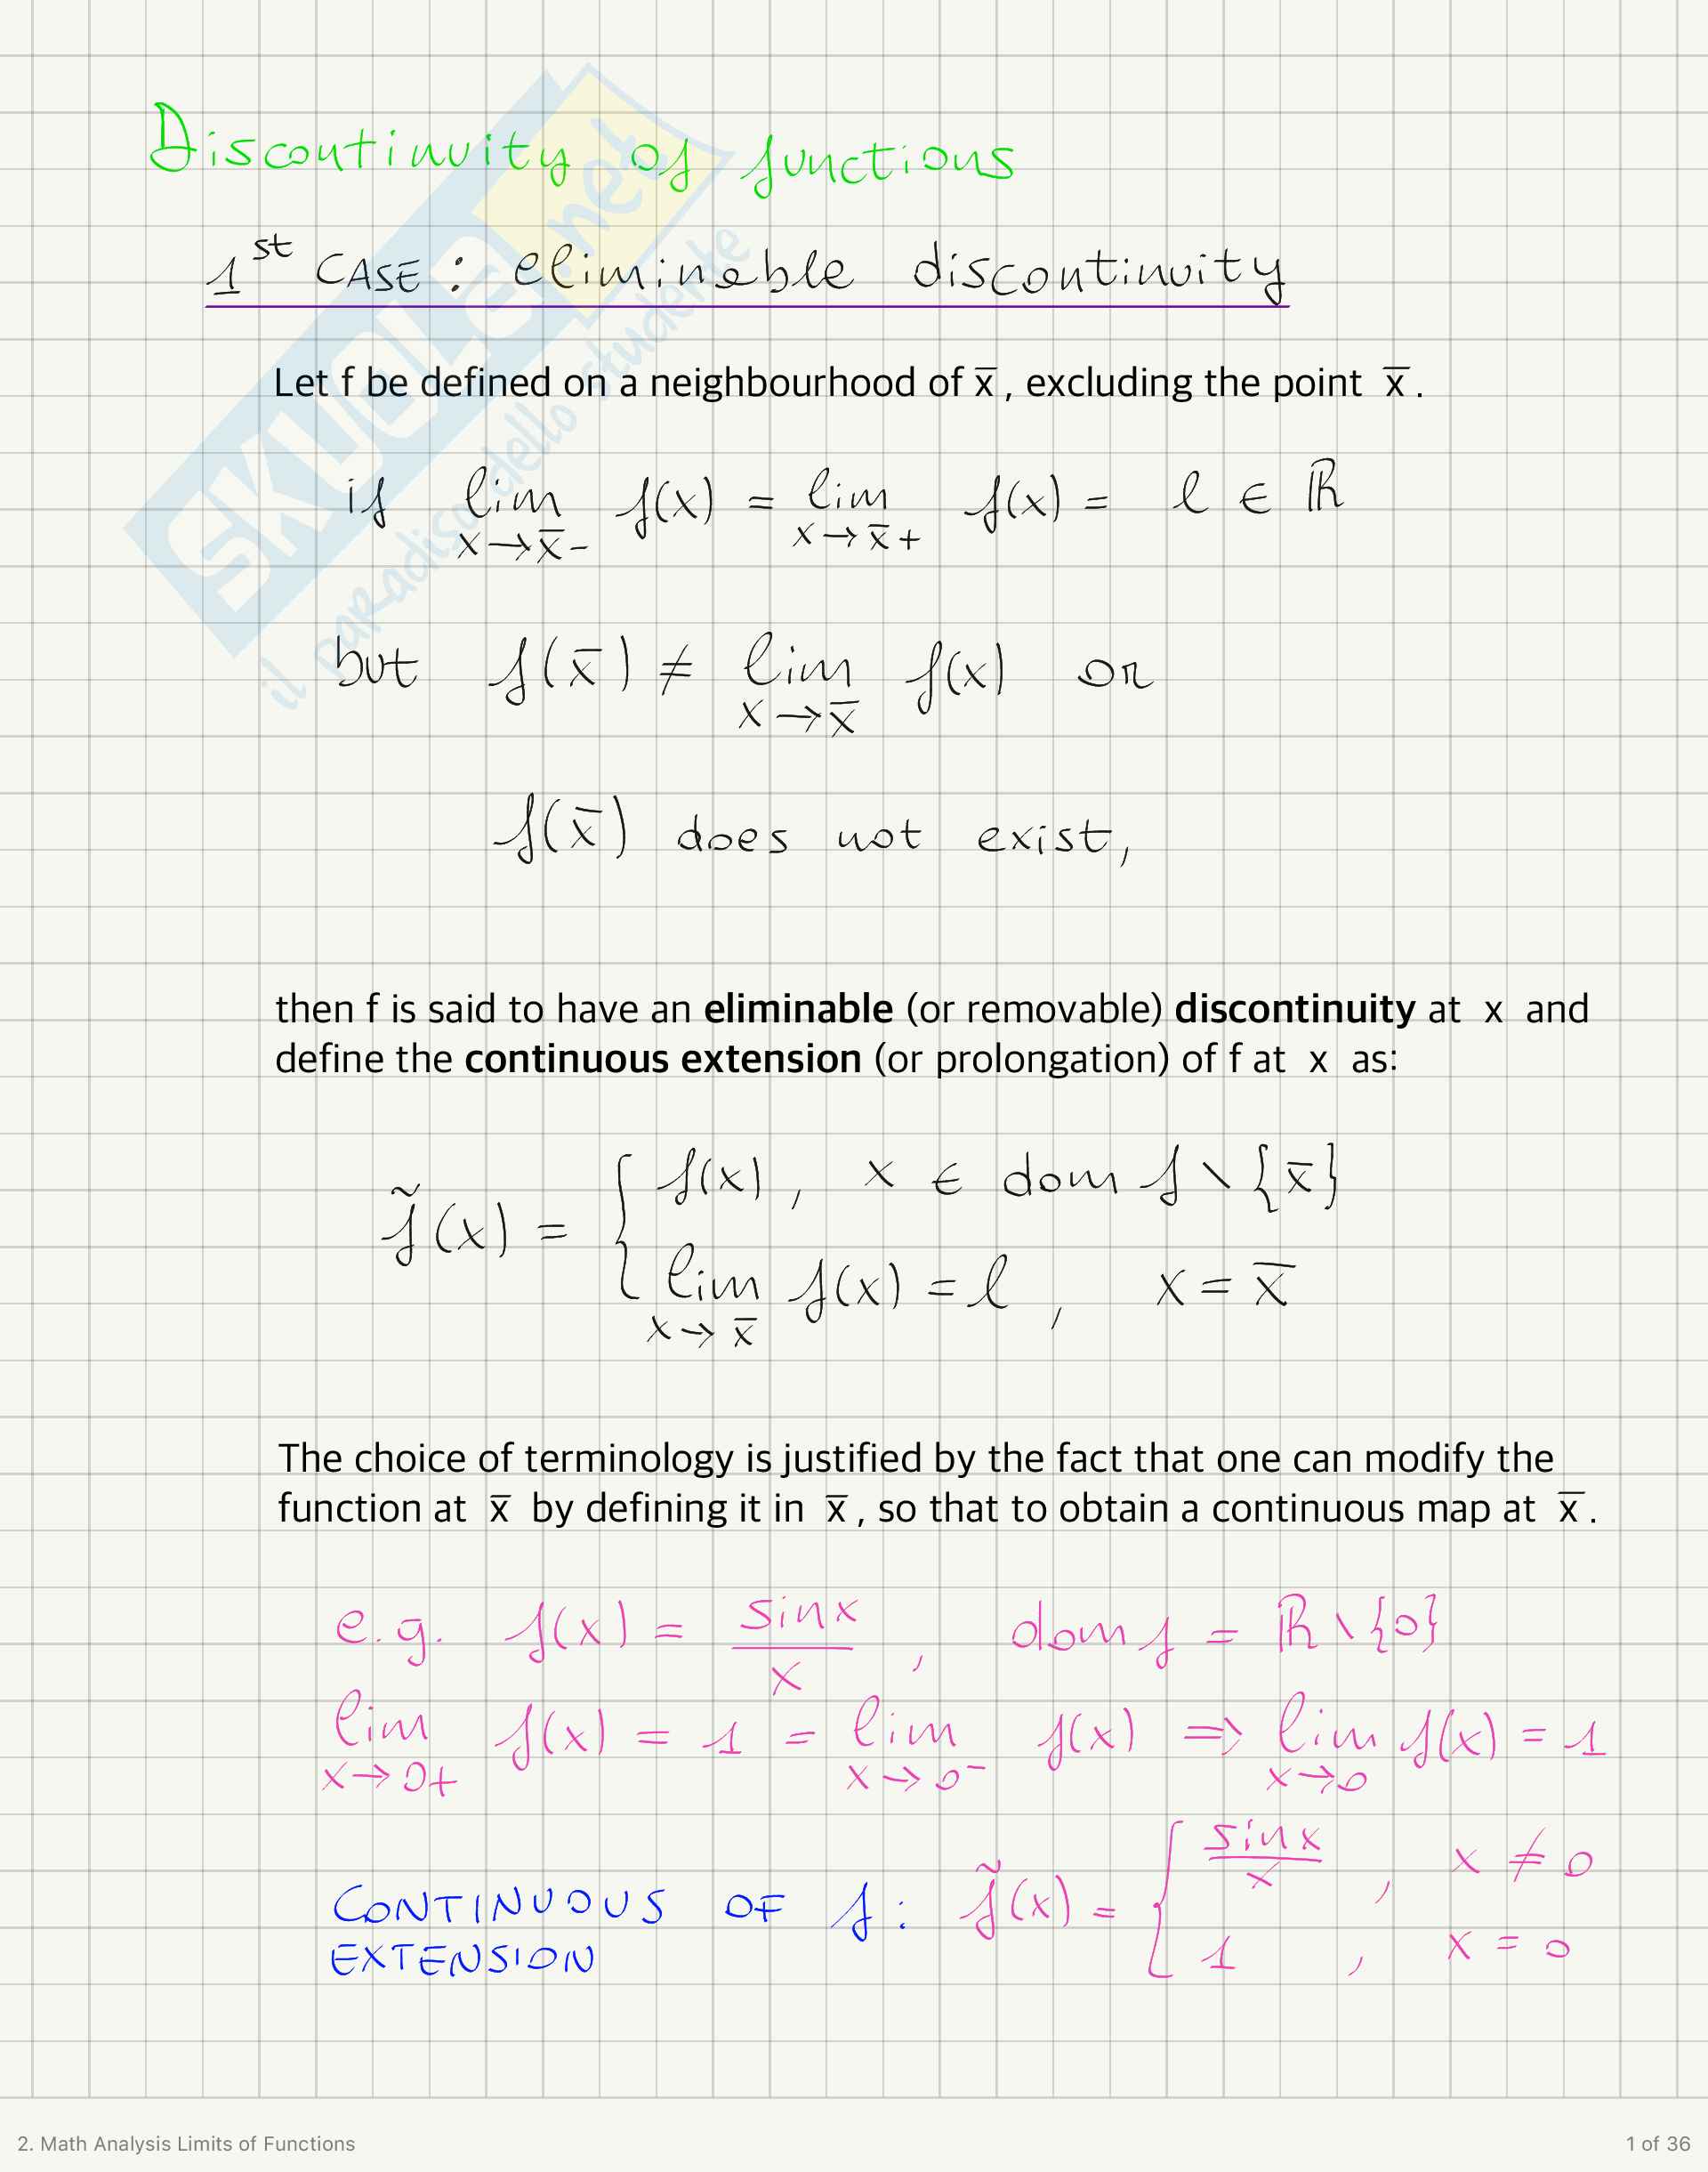 Discontinuity of functions
1st CASE: eliminable discontinuity
Let f be defined on a neighbourhood of x̄, excluding the point x̄.
if lim f(x) = lim f(x) = l ∈ ℝ
x→x̄- x→x̄+
but f(x̄) ≠ lim f(x) or
x→x̄
f(x̄) does not exist,
then f is said to have an eliminable (or removable) discontinuity at x and
define the continuous extension (or prolongation) of f at x as:
f(x), x ∈ dom f \ {x̄}
f̃(x) = {
lim f(x) = l, x = x̄
x→x̄
The choice of terminology is justified by the fact that one can modify the
function at x̄ by defining it in x̄, so that to obtain a continuous map at x̄.
e.g. f(x) = sinx/x, dom f = ℝ\{0}
lim f(x) = 1 = lim f(x) ⇒ lim f(x) = 1
x→0+ x→0- x→0
sinx/x, x ≠ 0
CONTINUOUS OF f: f̃(x) = {
EXTENSION 1, x = 0
SKUOLA.net
il paradiso dello studente
2. Math Analysis Limits of Functions
1 of 36